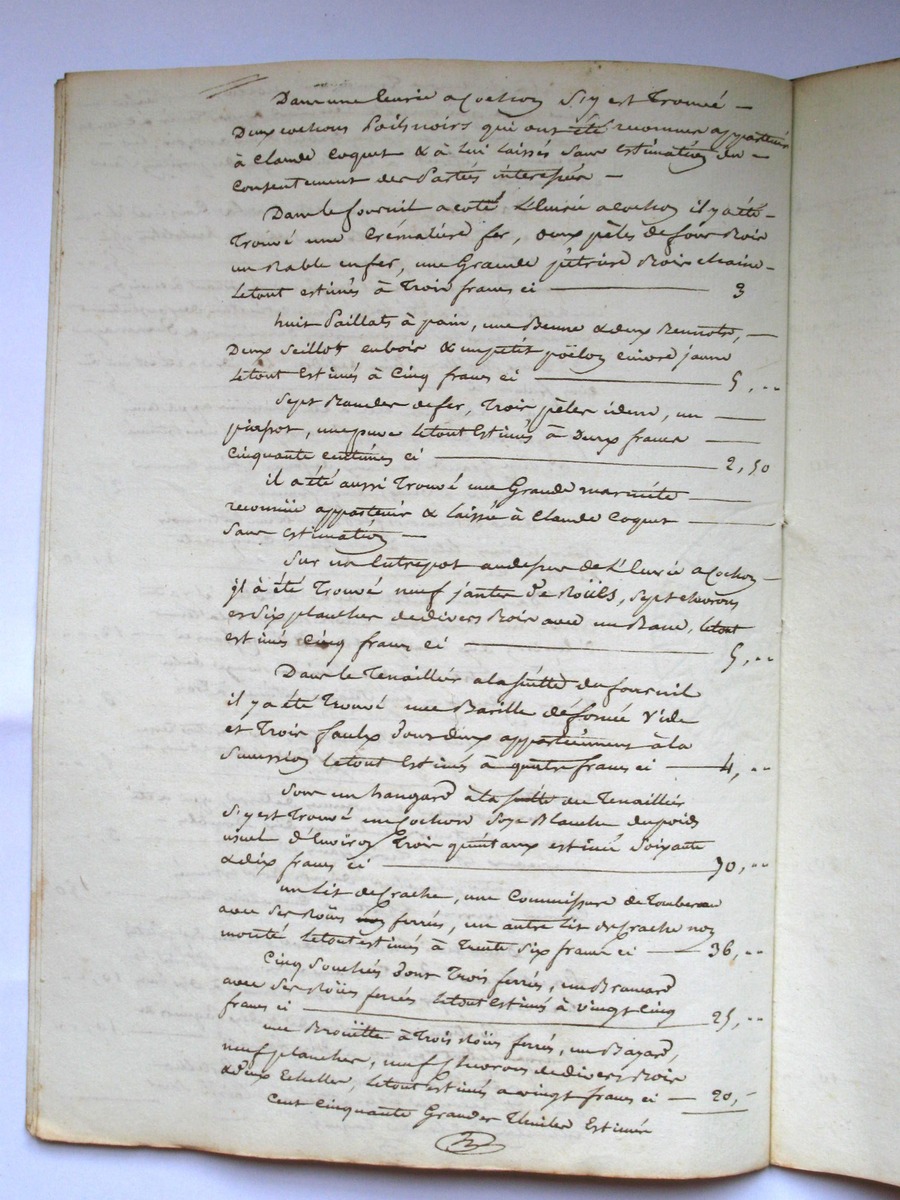 Dans une Ecurie a Cochon s'y est Trouvé —
Deux cochons Poils noirs qui ont été reconnus appartenir
à Claude Coquet & à Lui Laissés Sans Estimation du —
Consentement des Parties interessées —
Dans le fournil a coté L'Ecurie a Cochon il y a été —
Trouvé une Crématière fer, deux pèles de four Bois
un Rable en fer, une Grande pétrière Bois chaine —
Le tout estimés à Trois francs ci — 3
huit Paillats à pain, une Benne & deux Bennote, —
Deux Seillots en bois & un petit pöelon cuivre jaune
Le tout Estimés à Cinq francs ci — 5,..
Sept Bandes de fer, Trois pèles idem, un —
, une Le tout Estimés à Deux francs —
Cinquante centimes ci — 2,50
il a été aussi Trouvé une Grande marmite —
reconnüe appartenir & Laissée à Claude Coquet —
Sans estimation —
Sur un Entrepot au dessus de L'Ecurie a Cochon —
il à été Trouvé neuf jantes de Roües, Sept chevrons
et Six planches de divers Bois avec un Banc, Le tout
estimés Cinq francs ci — 5,..
Dans le Tenaillier a la suitte du fournil
il y a été Trouvé une Barille défoncée Vide
et Trois faulx dont deux appartiennent à la
Succession Le tout Estimés a quatre francs ci — 4,..
Sous un hangard à la suitte du Tenaillier
S'y est Trouvé un Cochon Soye Blanche du poids
usuel d'Environ Trois quintaux estimé Soixante
& dix francs ci — 70,..
un Lit de Crache, une Commissure de Tombereau
avec Ses Roües ferrées, un autre Lit de Crache non
monté Le tout estimés à Trente Six francs ci — 36,..
Cinq Souchés dont Trois ferrés, un Brancard
avec Ses Roües ferrées Le tout Estimés à Vingt Cinq
francs ci — 25,..
une Broüette à Trois Roües ferrées, un Bayard,
neuf planches, neuf chevrons de divers Bois
& deux Echelles, Le tout estimés a vingt francs ci — 20,–
Cent Cinquante Grandes Thuiles Estimés